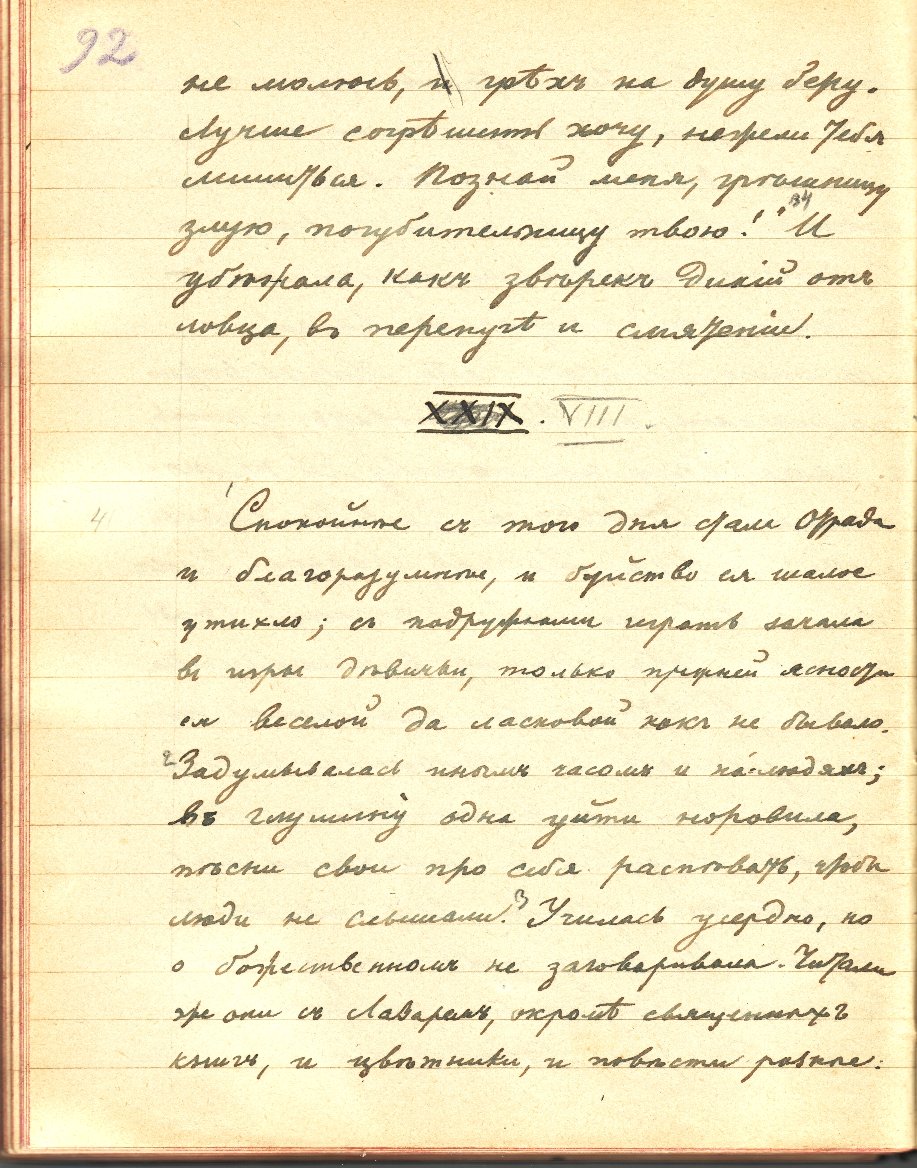 92
не молюсь, и грѣхъ на душу беру.
Лучше согрѣшить хочу, нежели Тебя
лишиться. Познай меня, грѣшницу
злую, погубительницу твою!" 34 И
убѣжала, какъ звѣрекъ дикій отъ
ловца, въ перепугѣ и смятеніи.
XXIX. VIII.
4 1 Спокойнѣе съ того дня стала Отрада
и благоразумнѣе, и буйство ея шалое
утихло; съ подружками играть зачала
въ игры дѣвичьи, только прежней ясности
ея веселой да ласковой какъ не бывало.
2 Задумывалась инымъ часомъ и на-людяхъ;
въ глушину одна уйти норовила,
пѣсни свои про себя распѣвать, чтобы
люди не слышали. 3 Училась усердно, но
о божественномъ не заговаривала. Читали
же они съ Лазаремъ, окромѣ священныхъ
книгъ, и цвѣтники, и повѣсти разные: